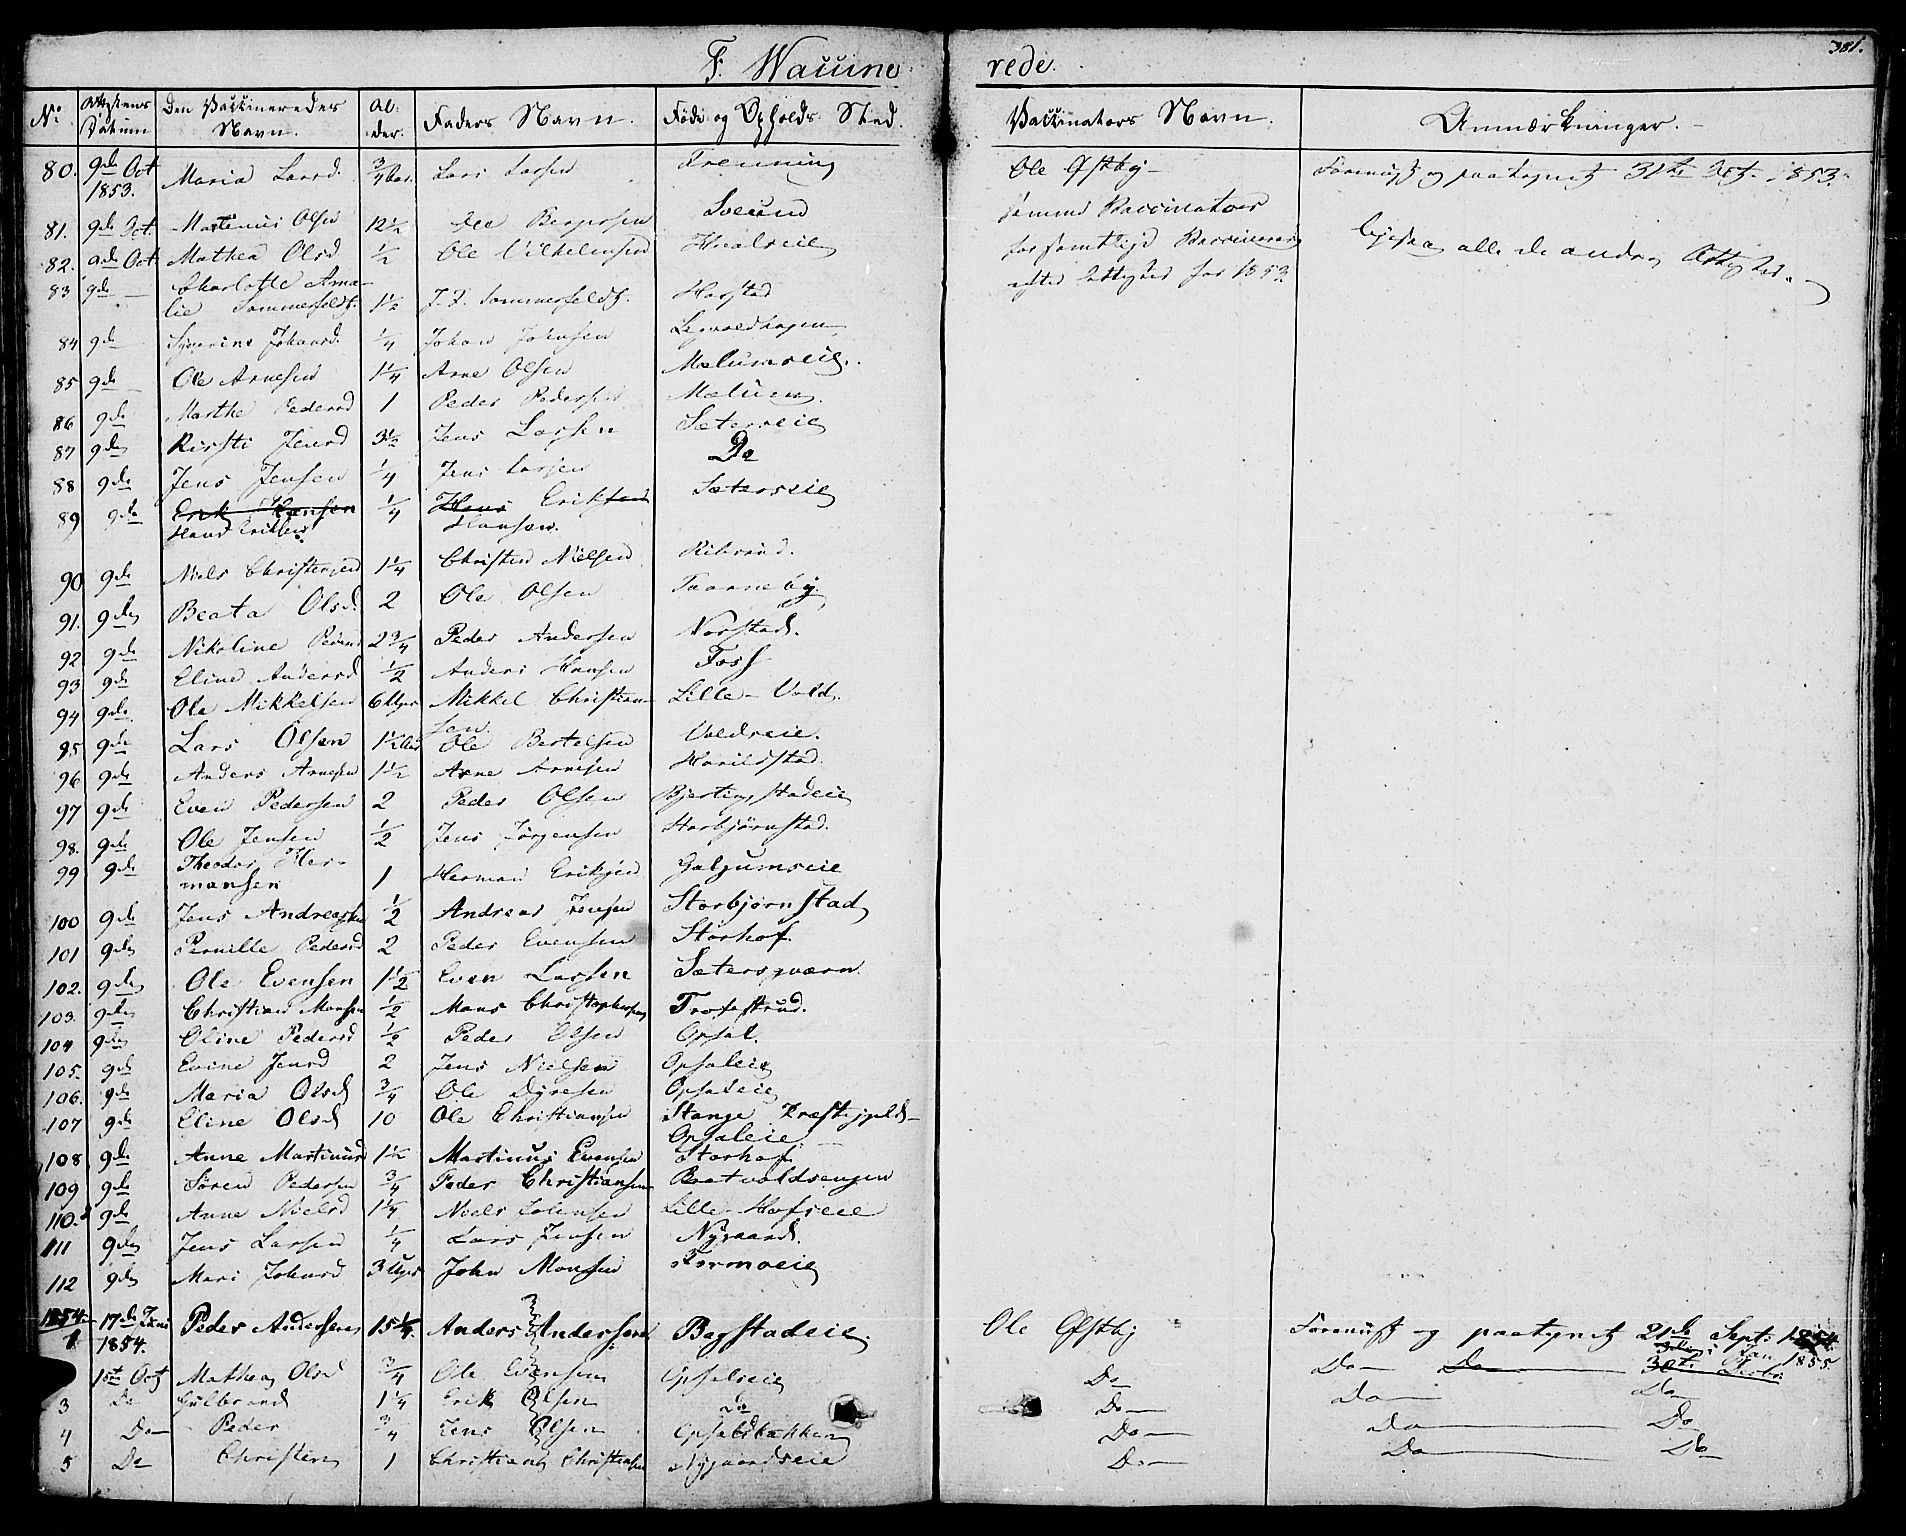 381.
F. Waccine rede.
No Attestens Datum Den Vaccineredes Navn. Al: der. Faders Navn. Føde og Opholds Sted. Vaccinators Navn. Anmærkninger.
80. 9de Oct 1853. Maria Larsd. 3/4 Aar. Lars Larsen Ole Østby Forevist og paategnet 31te Oct. 1853.
81. 9de Oct. Martinus Olsen 12 1/2 Ole samme Vaccinator
82. 9de Oct Mathea Olsd 1/2 Ole Vilhelmsen for samtlige alle de andre Attester.
83 9de Charlotte Ama-
lie Sommerfeldt. 1 1/2 Sommerfeldt. Harstad for 1853.
84 9de Johansd. 1/4 Johan Johnsen
85 9de Ole Arnesen 1 1/4 Arne Olsen Mælumseie.
86 9de Marthe Pedersd 1 Peder Pedersen Mælum.
87 9de Kirsti Jensd 3 1/2 Jens Larsen Sæterseie
88 9de Jens Jensen 1/4 Jens Larsen Do
89 9de Erik Hansen 1/4 Hans Eriksen Sæterseie
Hans Eriksen Hansen.
90 9de Niels Christensen 1 1/4 Christen Nielsen
91. 9de Beata Olsd. 2 Ole Olsen Taarneby.
92 9de Nikoline Pedersd 2 3/4 Peder Andersen Norstad.
93 9de Eline Andersd 1/2 Anders Hansen Foss
94 9de Ole Mikkelsen 6 Uger Mikkel Christian-
sen. Lille Vold.
95 9de Lars Olsen 1 1/2 Aar Ole Bertelsen Voldseie.
96 9de Anders Arnesen 1 1/2 Arne Arnesen Harildstad.
97 9de Even Pedersen 2 Peder Olsen
98. 9de Ole Jensen 1/2 Jens Jørgensen Storbjørnstad.
99 9de Theodor Her-
mansen 1 Herman Eriksen Galgumseie
100 9de Jens Andreassen 1/2 Andreas Jensen Storbjørnstad
101 9de Pernille Pedersd 2 Peder Evensen Storhof.
102. 9de Ole Evensen 1 1/2 Even Larsen Sætersqværn
103. 9de Christian Monsen 1/2 Mons Christophersen
104 9de Oline Pedersd 1/2 Peder Olsen Opsal.
105. 9de Evine Jensd 2 Jens Nielsen Opsaleie
106. 9de Maria Olsd 3/4 Ole Dyresen Opsaleie
107 9de Eline Olsd 10 Ole Christiansen Stange Præstegjeld-
Opsaleie
108 9de Anne Martinusd 1 1/2 Martinus Evensen Storhof
109 9de Søren Pedersen 3/4 Peder Christiansen Bratvoldsengen
110. 9de Anne Nielsd 1 1/4 Niels Johnsen Lille Hofseie
111 9de Jens Larsen 1/4 Lars Jensen Nygaard.
112 9de Mari Johnsd 3 Uger John Monsen Formoeie
1854.
1 17de Juni 1854. Peder Andersen 15 1/4. Anders Andersen Bagstadeie. Ole Østby Forevist og paategnet 21de Sept: 1854.
1ste Oct Mathea Olsd 3/4 Ole Evensen Opsaleie Do Do Do 30te Jan 1855
3 Do Gulbrand 1 1/4 Erik Olsen Do Do Do Do
4 Do Peder 3/4 Jens Olsen Opsalbakken Do Do Do
5 Do Christian 1 Christian Christiansen Nygaardseie Do Do Do